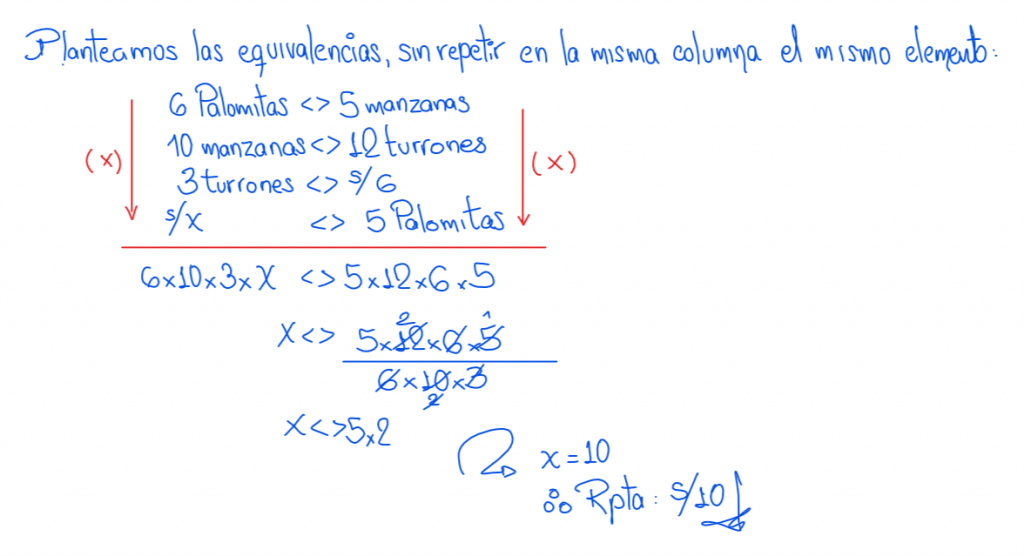 Planteamos las equivalencias, sin repetir en la misma columna el mismo elemento:
6 Palomitas <> 5 manzanas
10 manzanas <> 12 turrones
(x) (x)
3 turrones <> s/6
s/x <> 5 Palomitas
6x10x3xX <> 5x12x6x5
2 1
X <> 5x12x6x5
6x10x3
2
X <> 5x2
x = 10
Rpta: s/10